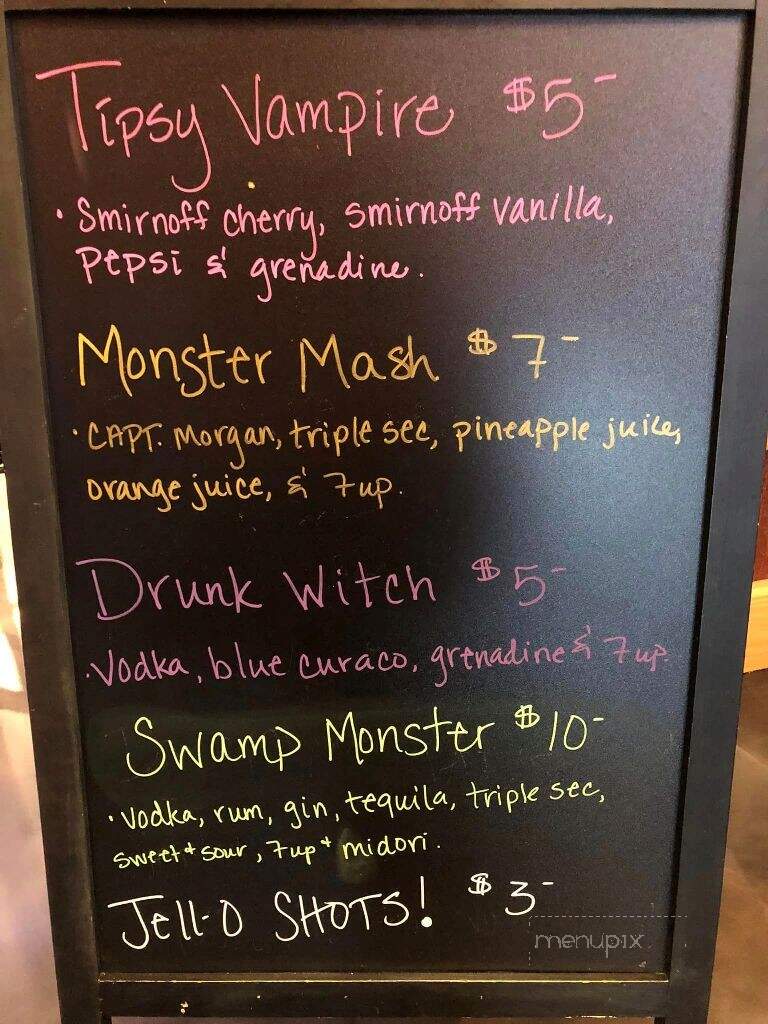 Tipsy Vampire $5-
• Smirnoff cherry, smirnoff vanilla,
Pepsi & grenadine.
Monster Mash $7-
• CAPT. Morgan, triple sec, pineapple juice,
orange juice, & 7up.
Drunk Witch $5-
• Vodka, blue curaco, grenadine & 7up.
Swamp Monster $10-
• Vodka, rum, gin, tequila, triple sec,
sweet + sour, 7up + midori.
Jell-O SHOTS! $3-
menupix